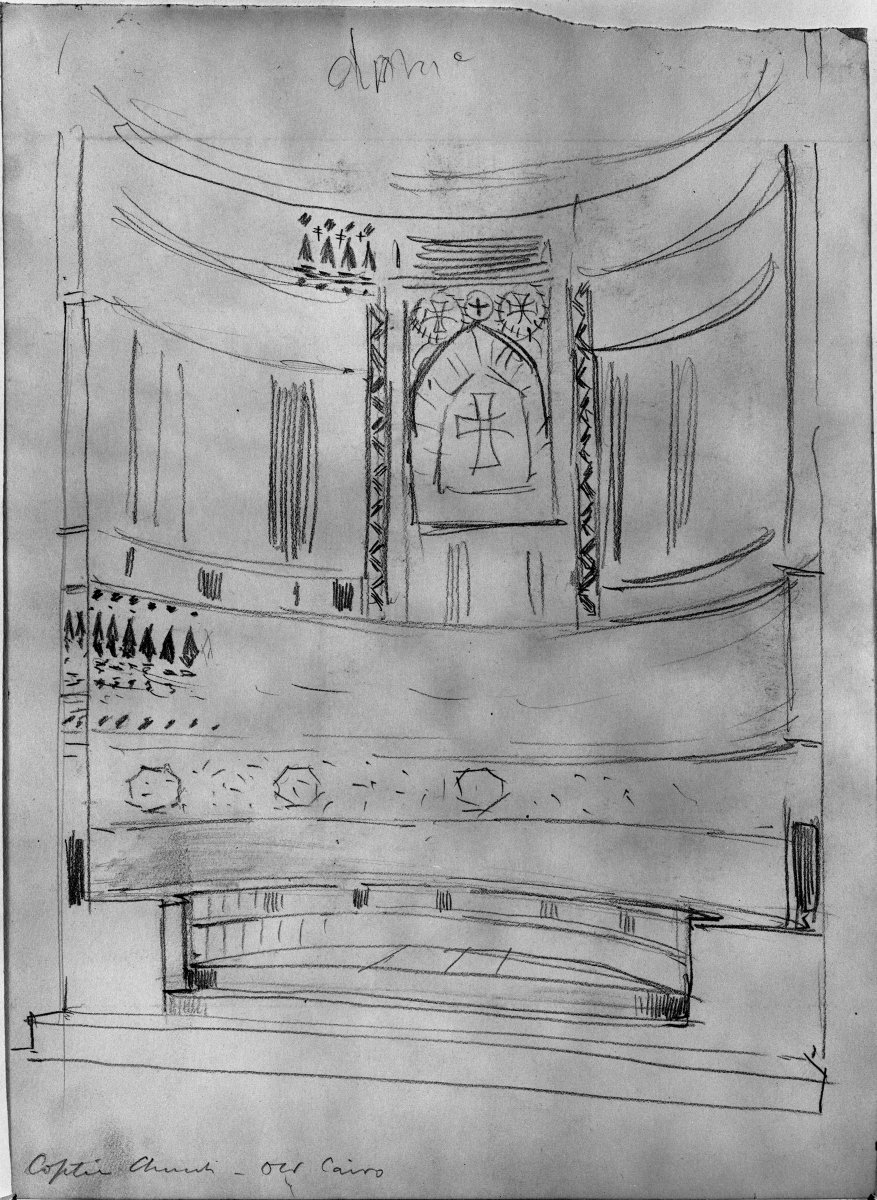 Coptic Church - Old Cairo